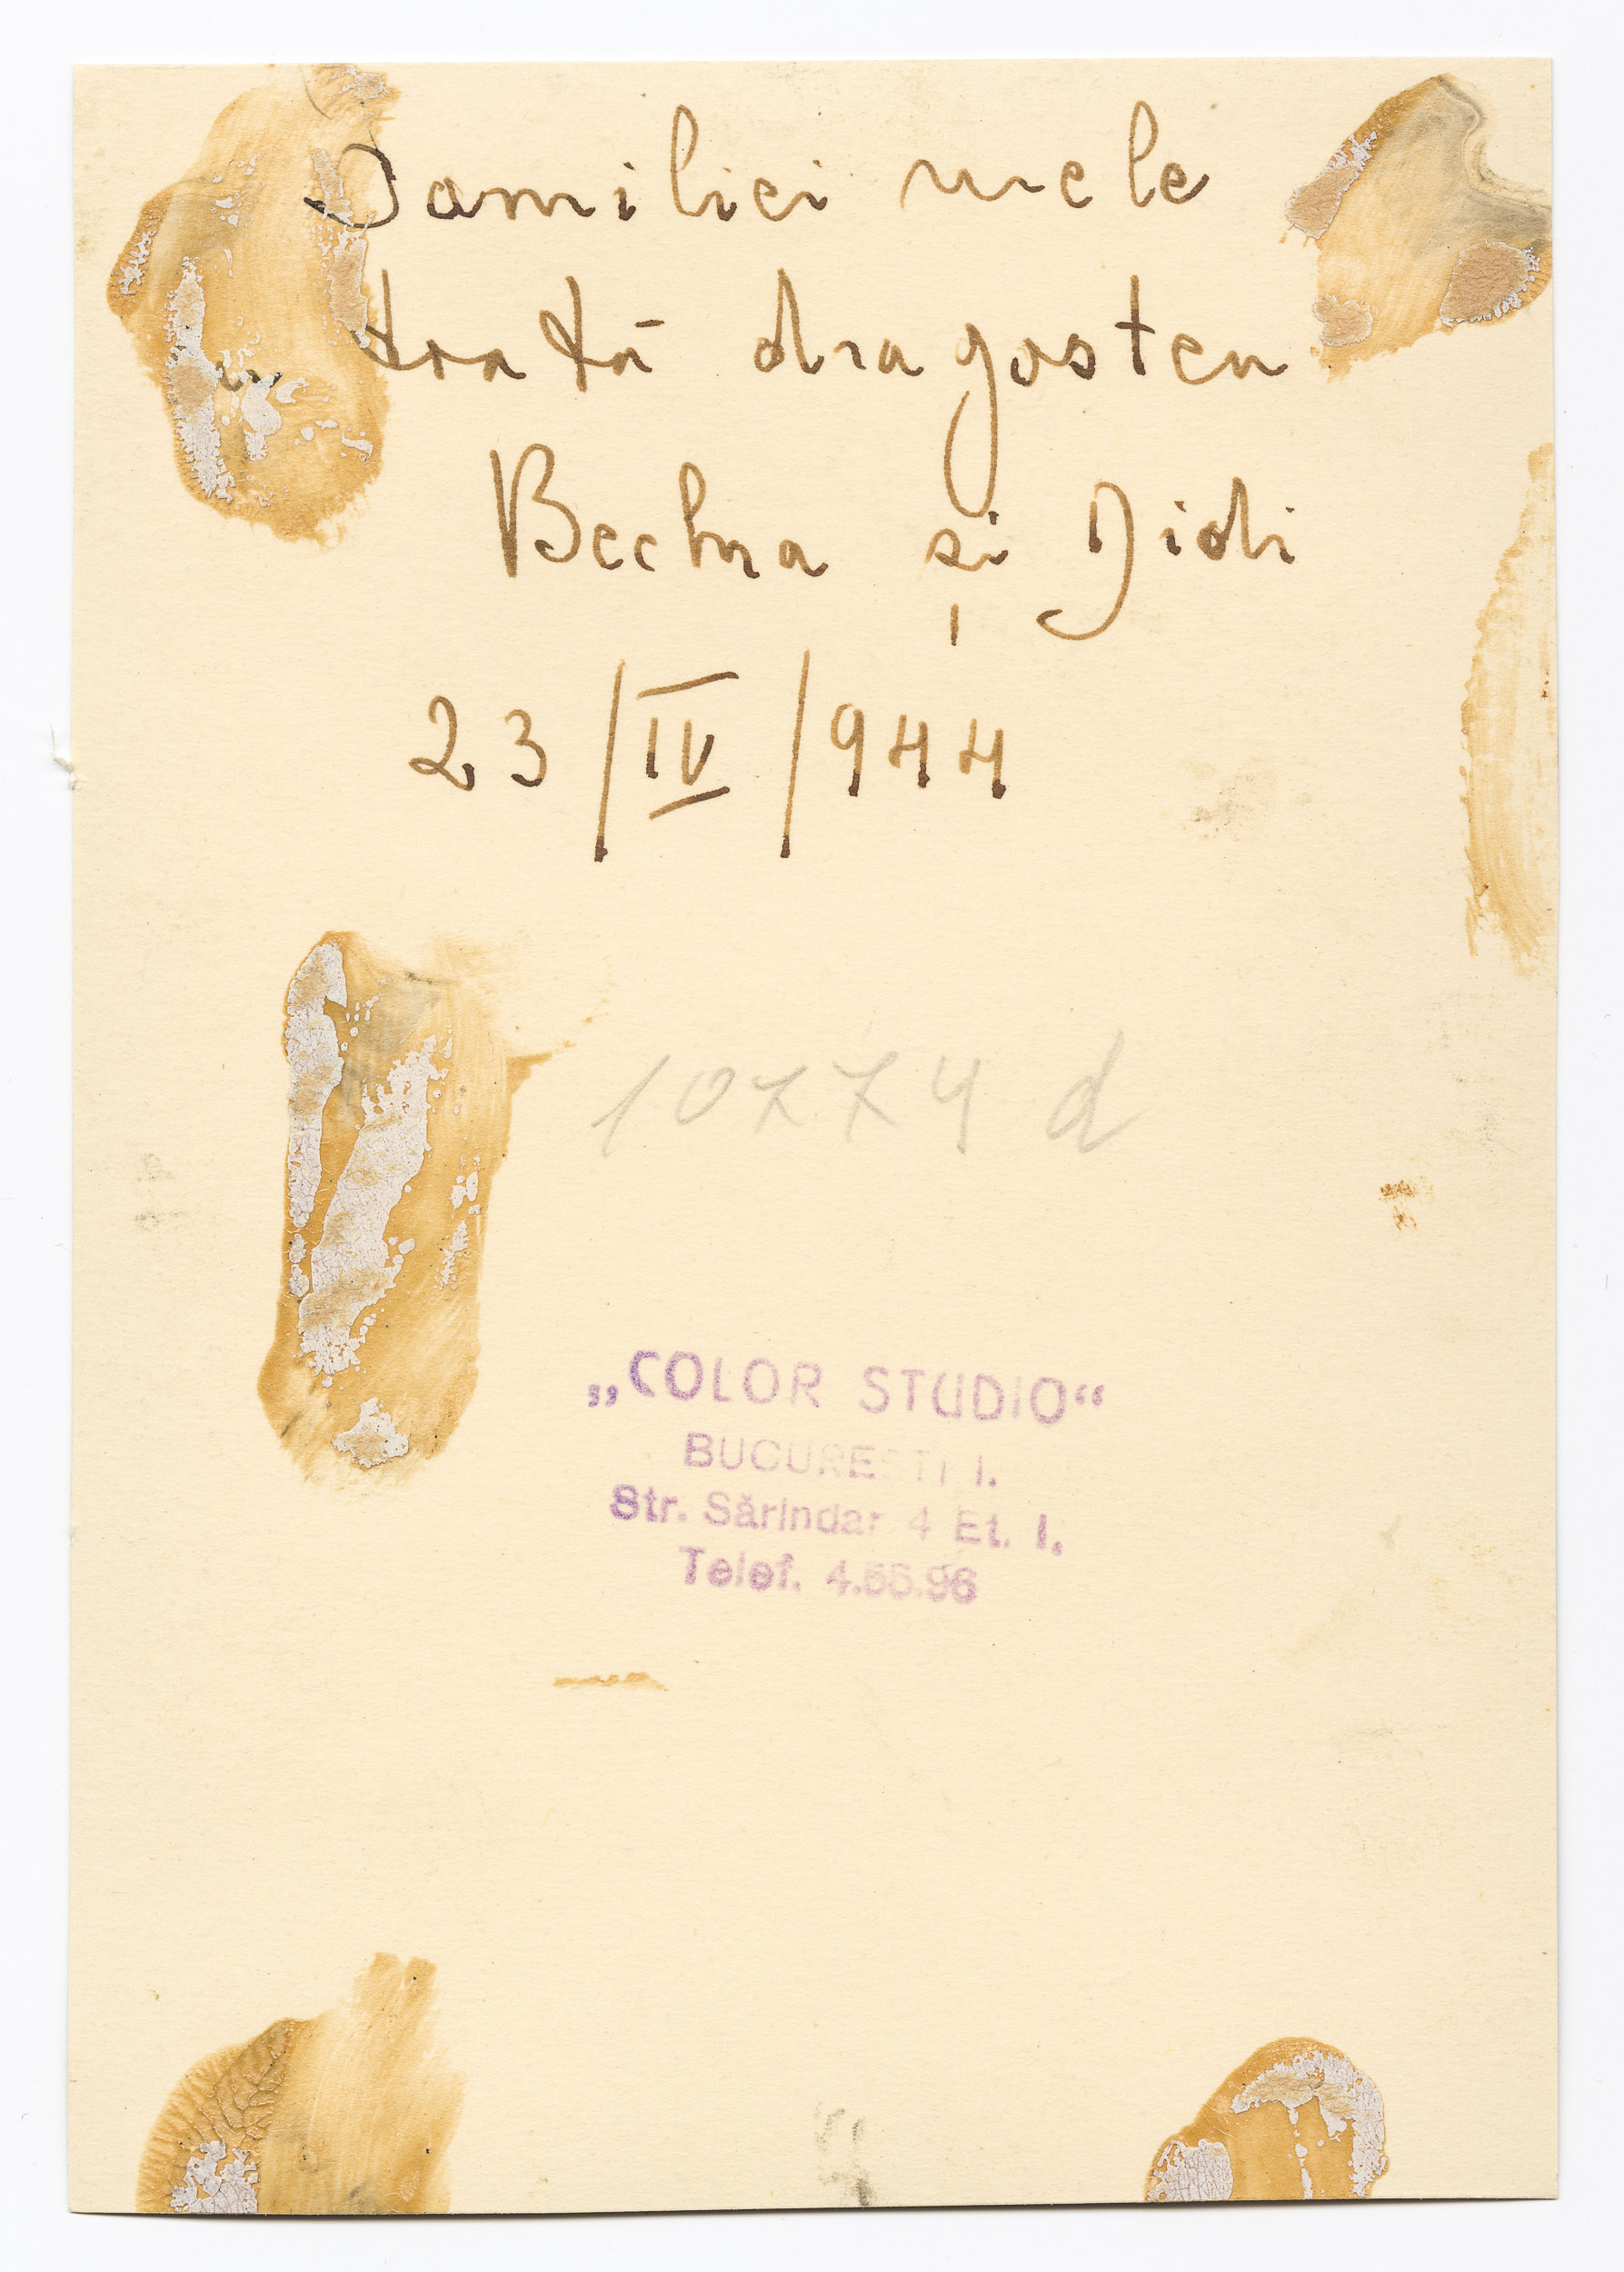 Familiei mele
cu toată dragostea
și Didi
23/IV/944
10774 d
„COLOR STUDIO“
BUCUREȘTI I.
Str. Sărindar 4 Et. I.
Telef. 4.55.96